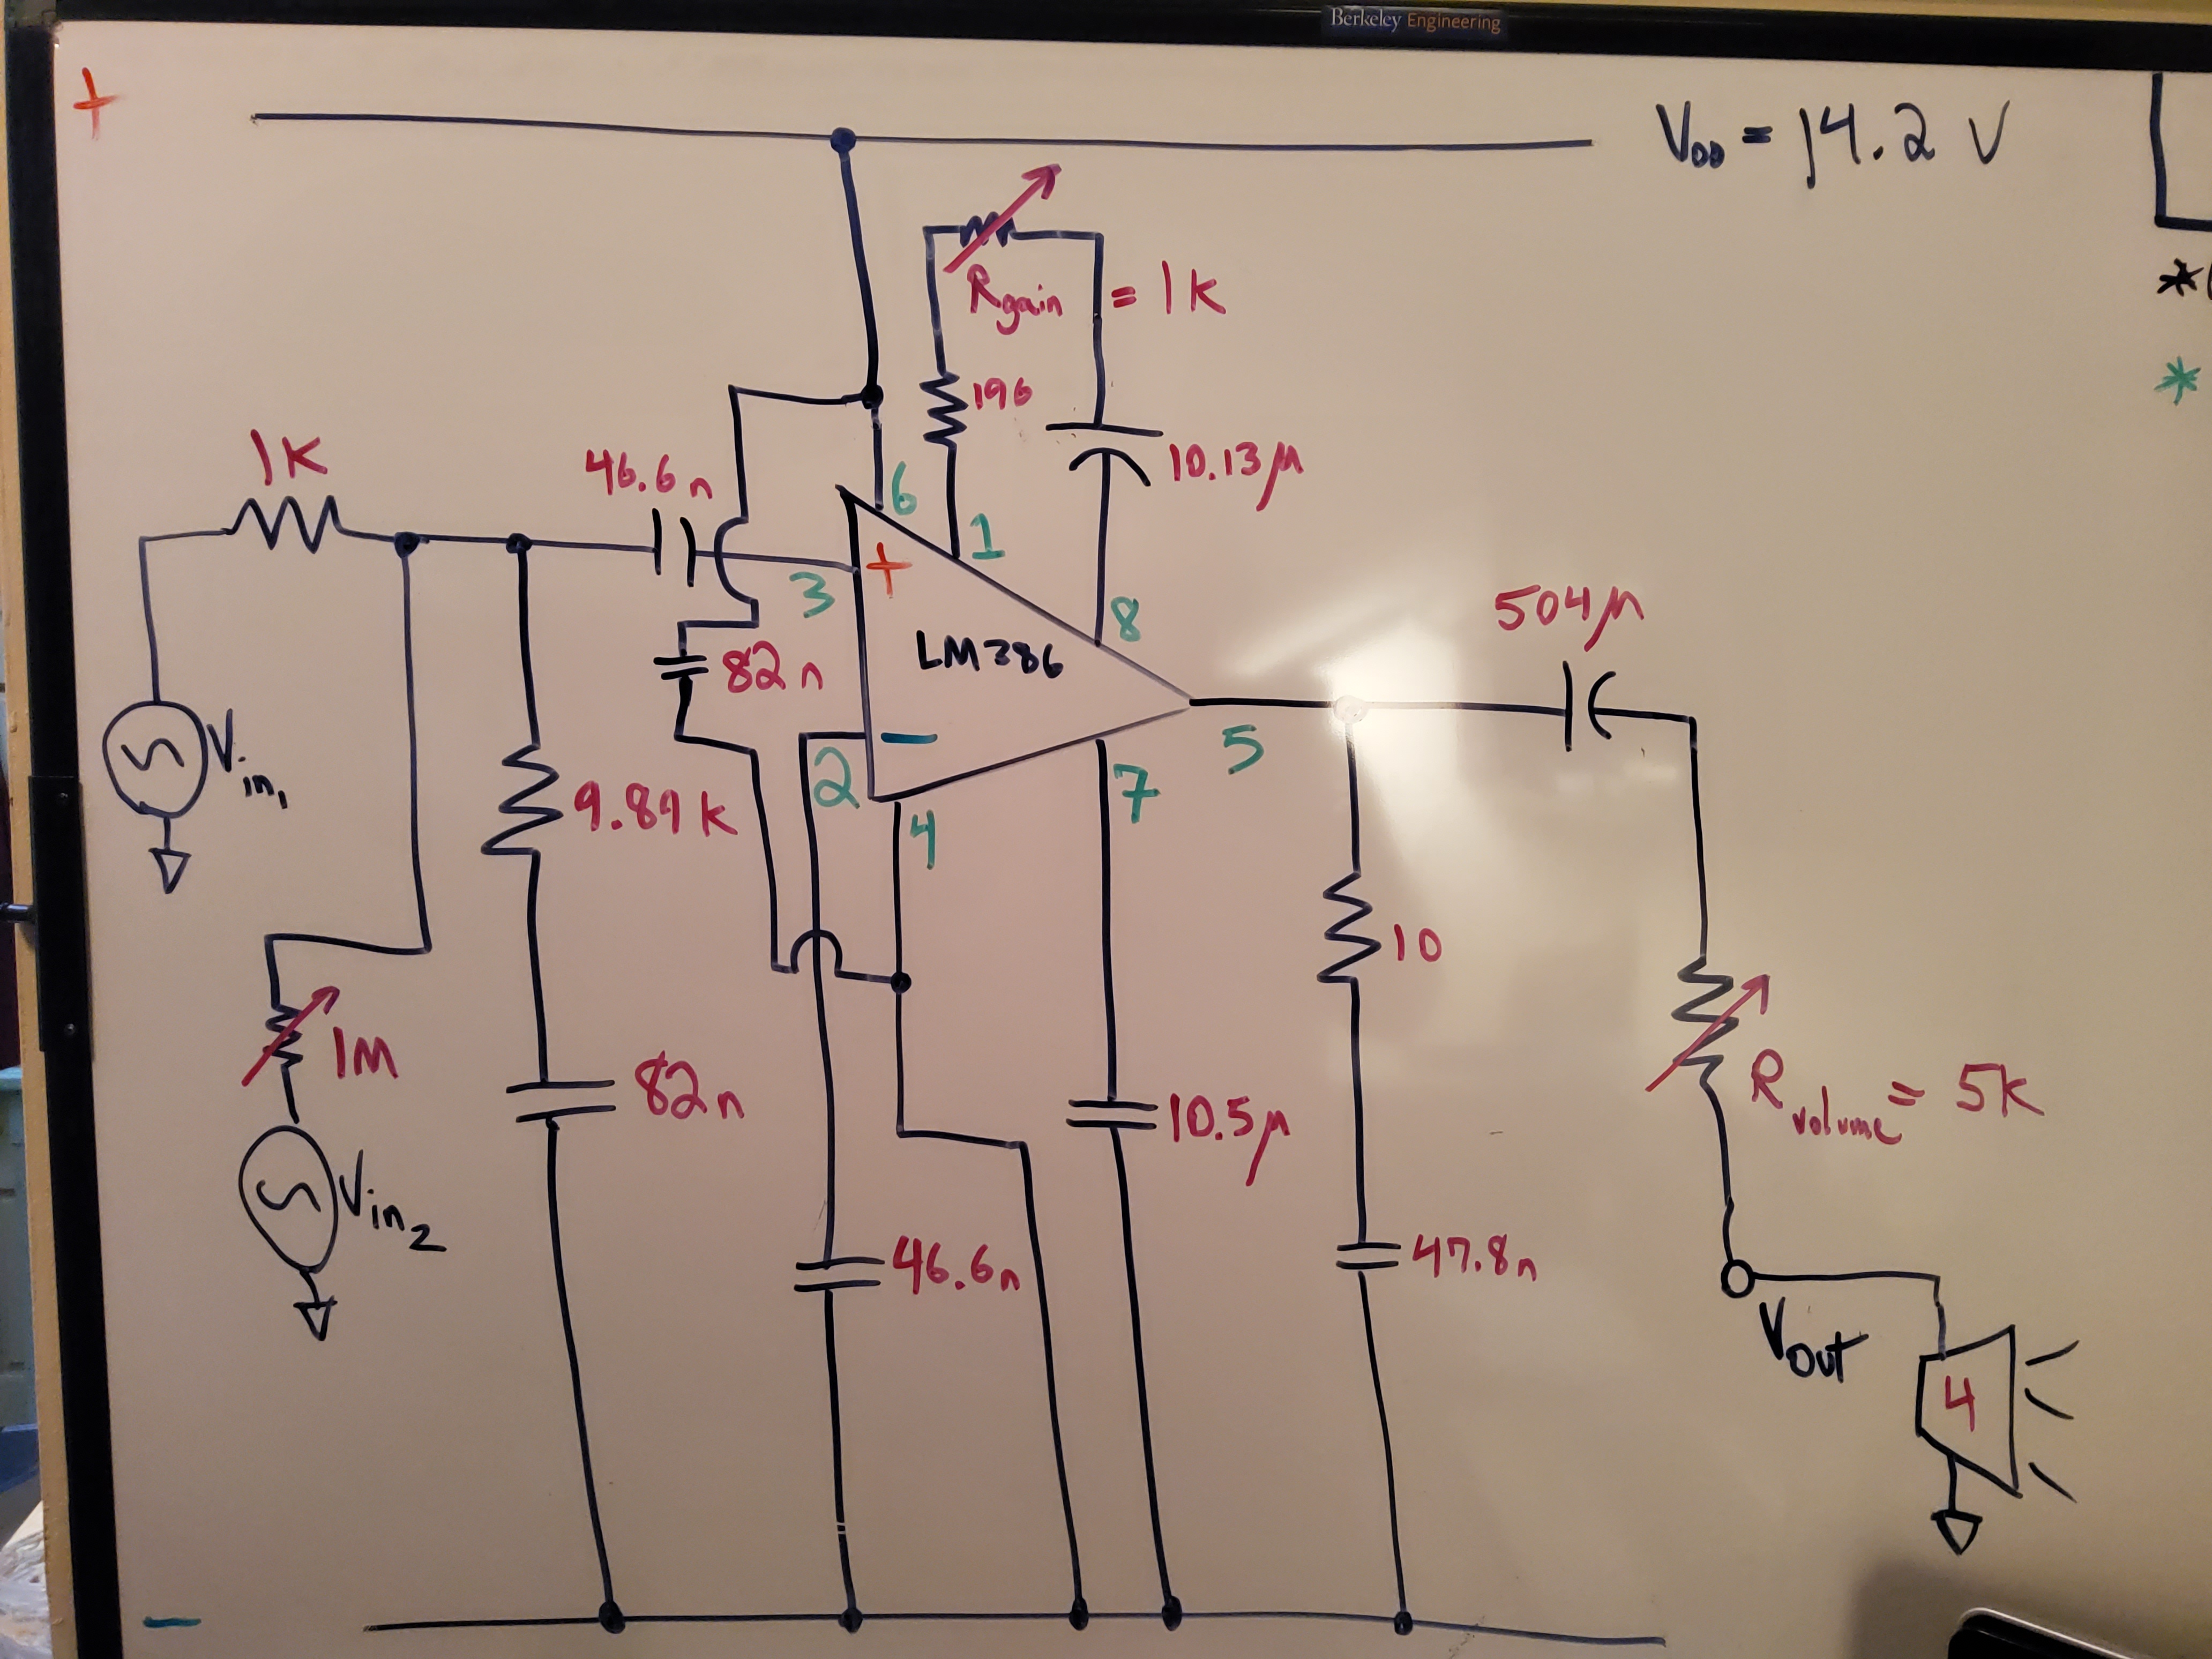 Berkeley Engineering
+
V_DD = 14.2 V
R_gain = 1k
196
10.13µ
1K
46.6n
6
1
+
3
8
LM386
82n
504µ
V_in1
−
2
5
7
9.89k
4
10
1M
82n
R_volume = 5k
10.5µ
V_in2
46.6n
47.8n
V_out
4
−
*
*